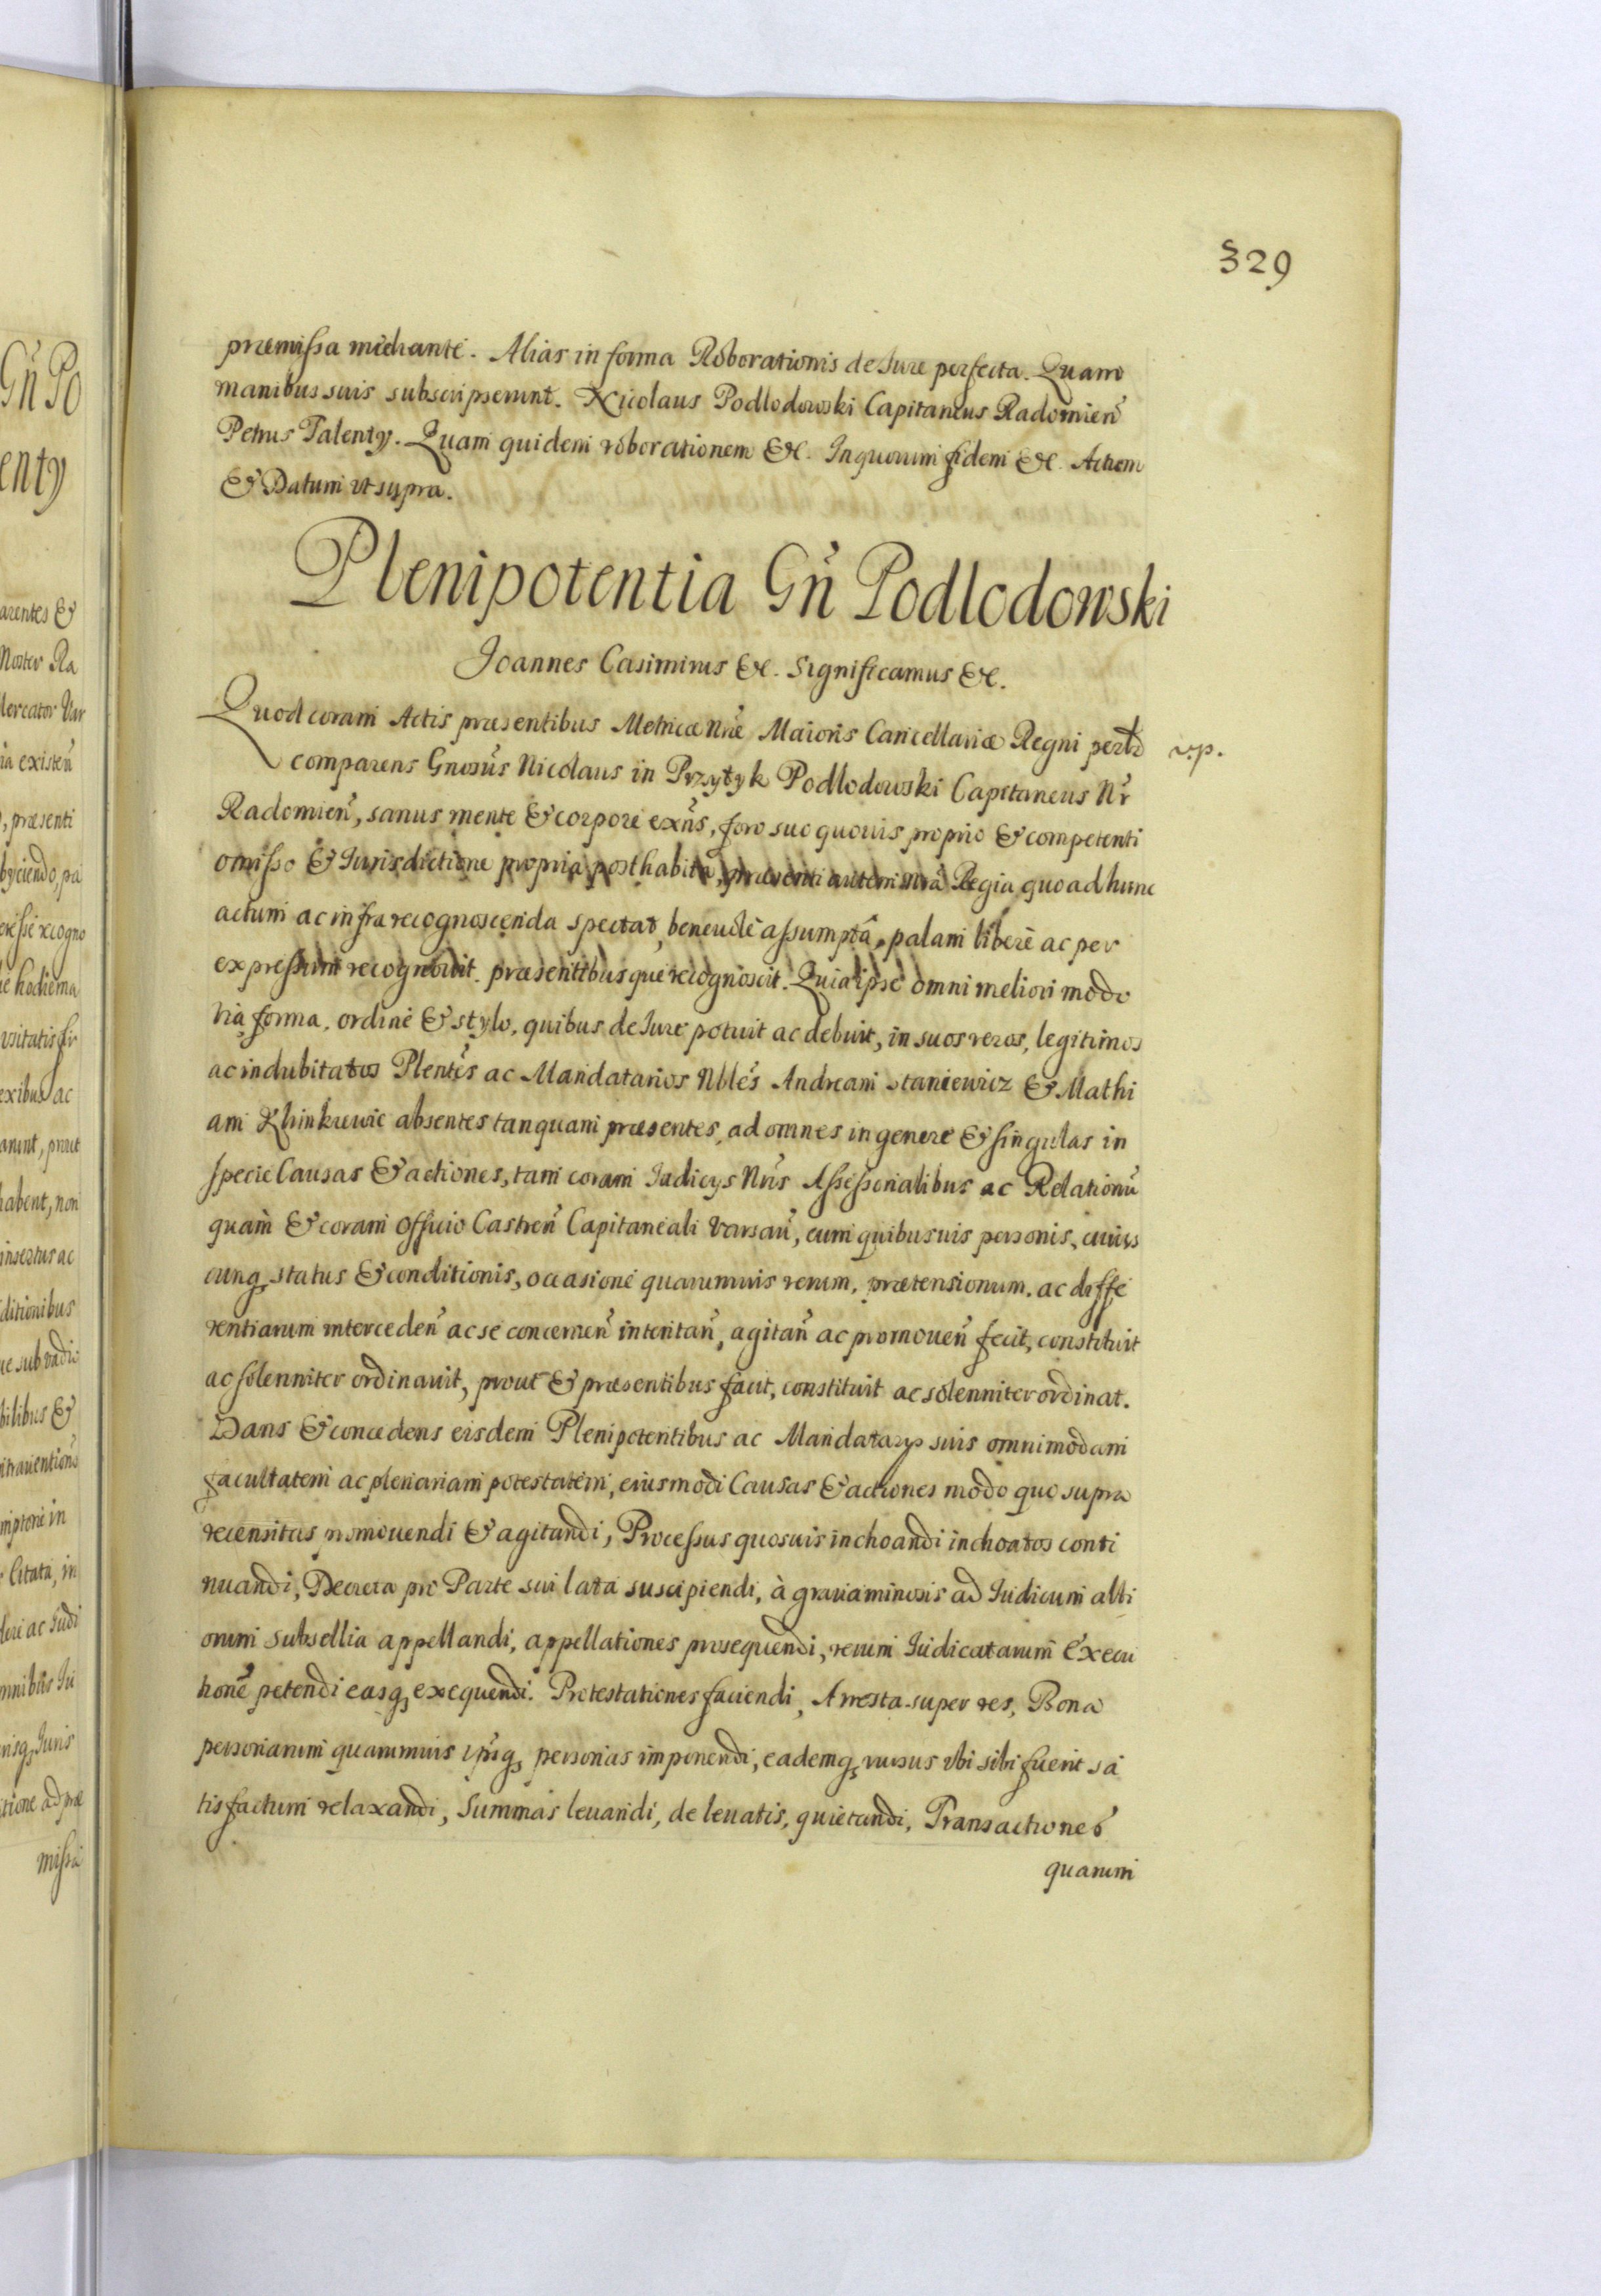 329
præmissa mediante. Alias in forma Roborationis de Iure perfecta. Quam
manibus suis subscripserunt. Nicolaus Podlodowski Capitaneus Radomień
Petrus Talenty. Quam quidem roborationem &c. In quorum fidem &c. Actum
& Datum ut supra.
Plenipotentia Gń Podlodowski
Joannes Casimirus &c. Significamus &c.
Quod coram Actis præsentibus Metricæ Nræ Maioris Cancellariæ Regni perłr v.p.
comparens Gnosus Nicolaus in Przytyk Podlodowski Capitaneus Nr
Radomień, sanus mente & corpore exńs, foro suo quovis proprio & competenti
omisso & Iurisdictione propria posthabitâ, præsenti autem nrâ Regia quo ad hunc
actum ac infra recognoscenda spectat, benevolè assumptâ, palam liberè ac per
expressum recognovit. præsentibusque recognoscit. Quia ipse omni meliori modo
via forma, ordine & stylo, quibus de Iure potuit ac debuit, in suos veros, legitimos
ac indubitatos Plentes ac Mandatarios Nbles Andream Staniewicz & Mathi
am absentes tanquam præsentes, ad omnes in genere & singulas in
specie Causas & actiones, tam coram Iudicys Nris Assessorialibus ac Relationũ
quàm & coram Officio Castreń Capitaneali Varsań, cum quibusuis personis, cuius
cunq, status & conditionis, occasione quarumuis rerum, prætensionum, ac diffe
rentiarum intercedeń ac se concerneń intentań, agitań ac promoueń fecit, constituit
ac solenniter ordinauit, prout & præsentibus facit, constituit ac solenniter ordinat.
Dans & concedens eisdem Plenipotentibus ac Mandatarys suis omnimodam
facultatem ac plenariam potestatem, eiusmodi Causas & actiones modo quo supra
recensitas promouendi & agitandi, Processus quosuis inchoandi inchoatos conti
nuandi, Decreta pro Parte sui lata suscipiendi, à grauaminosis ad Iudicum alti
orum subsellia appellandi, appellationes prosequendi, rerum Iudicatarum Execu
tionẽ petendi easq, exequendi. Protestationes faciendi, Arresta super res, Bona
personarum quarumuis ipsasq, personas imponendi, eademq, rursus vbi sibi fuerit sa
tisfactum relaxandi, Summas leuandi, de leuatis, quietandi, Transactiones
quarum